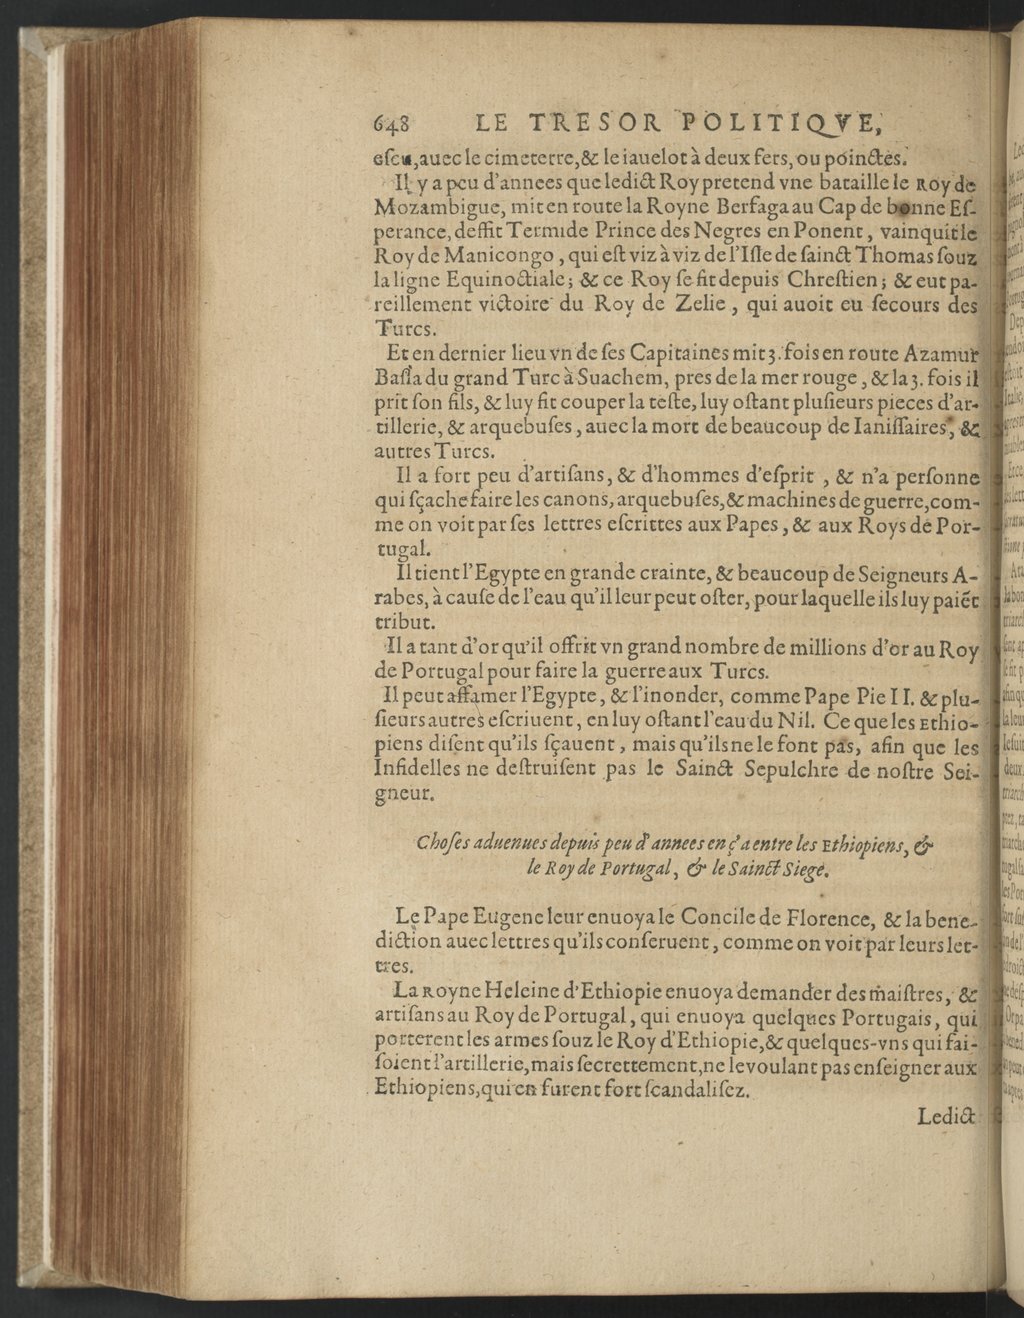 648 LE TRESOR POLITIQVE,
eſcu,auec le cimeterre,& le iauelot à deux fers, ou poinctes.
Il y a peu d'annees que ledict Roy pretend vne bataille le Roy de
Mozambigue, mit en route la Royne Berfaga au Cap de bonne Eſ-
perance, deffit Termide Prince des Negres en Ponent, vainquit le
Roy de Manicongo, qui eſt viz à viz de l'Iſle de ſainct Thomas ſouz
la ligne Equinoctiale; & ce Roy ſe fit depuis Chreſtien; & eut pa-
reillement victoire du Roy de Zelie, qui auoit eu ſecours des
Turcs.
Et en dernier lieu vn de ſes Capitaines mit 3. fois en route Azamur
Baſſa du grand Turc à Suachem, pres de la mer rouge, & la 3. fois il
prit ſon fils, & luy fit couper la teſte, luy oſtant pluſieurs pieces d'ar-
tillerie, & arquebuſes, auec la mort de beaucoup de Ianiſſaires, &
autres Turcs.
Il a fort peu d'artiſans, & d'hommes d'eſprit, & n'a perſonne
qui ſçache faire les canons, arquebuſes,& machines de guerre,com-
me on voit par ſes lettres eſcrittes aux Papes, & aux Roys de Por-
tugal.
Il tient l'Egypte en grande crainte, & beaucoup de Seigneurs A-
rabes, à cauſe de l'eau qu'il leur peut oſter, pour laquelle ils luy paiẽt
tribut.
Il a tant d'or qu'il offrit vn grand nombre de millions d'or au Roy
de Portugal pour faire la guerre aux Turcs.
Il peut affamer l'Egypte, & l'inonder, comme Pape Pie II. & plu-
ſieurs autres eſcriuent, en luy oſtant l'eau du Nil. Ce que les Ethio-
piens diſent qu'ils ſçauent, mais qu'ils ne le font pas, afin que les
Infidelles ne deſtruiſent pas le Sainct Sepulchre de noſtre Sei-
gneur.
Choſes aduenues depuis peu d'annees en ç'a entre les Ethiopiens, &
le Roy de Portugal, & le Sainct Siege.
Le Pape Eugene leur enuoya le Concile de Florence, & la bene-
diction auec lettres qu'ils conſeruent, comme on voit par leurs let-
tres.
La Royne Heleine d'Ethiopie enuoya demander des maiſtres, &
artiſans au Roy de Portugal, qui enuoya quelques Portugais, qui
porterent les armes ſouz le Roy d'Ethiopie,& quelques-vns qui fai-
ſoient l'artillerie,mais ſecrettement,ne le voulant pas enſeigner aux
Ethiopiens,qui en furent fort ſcandaliſez.
Ledict